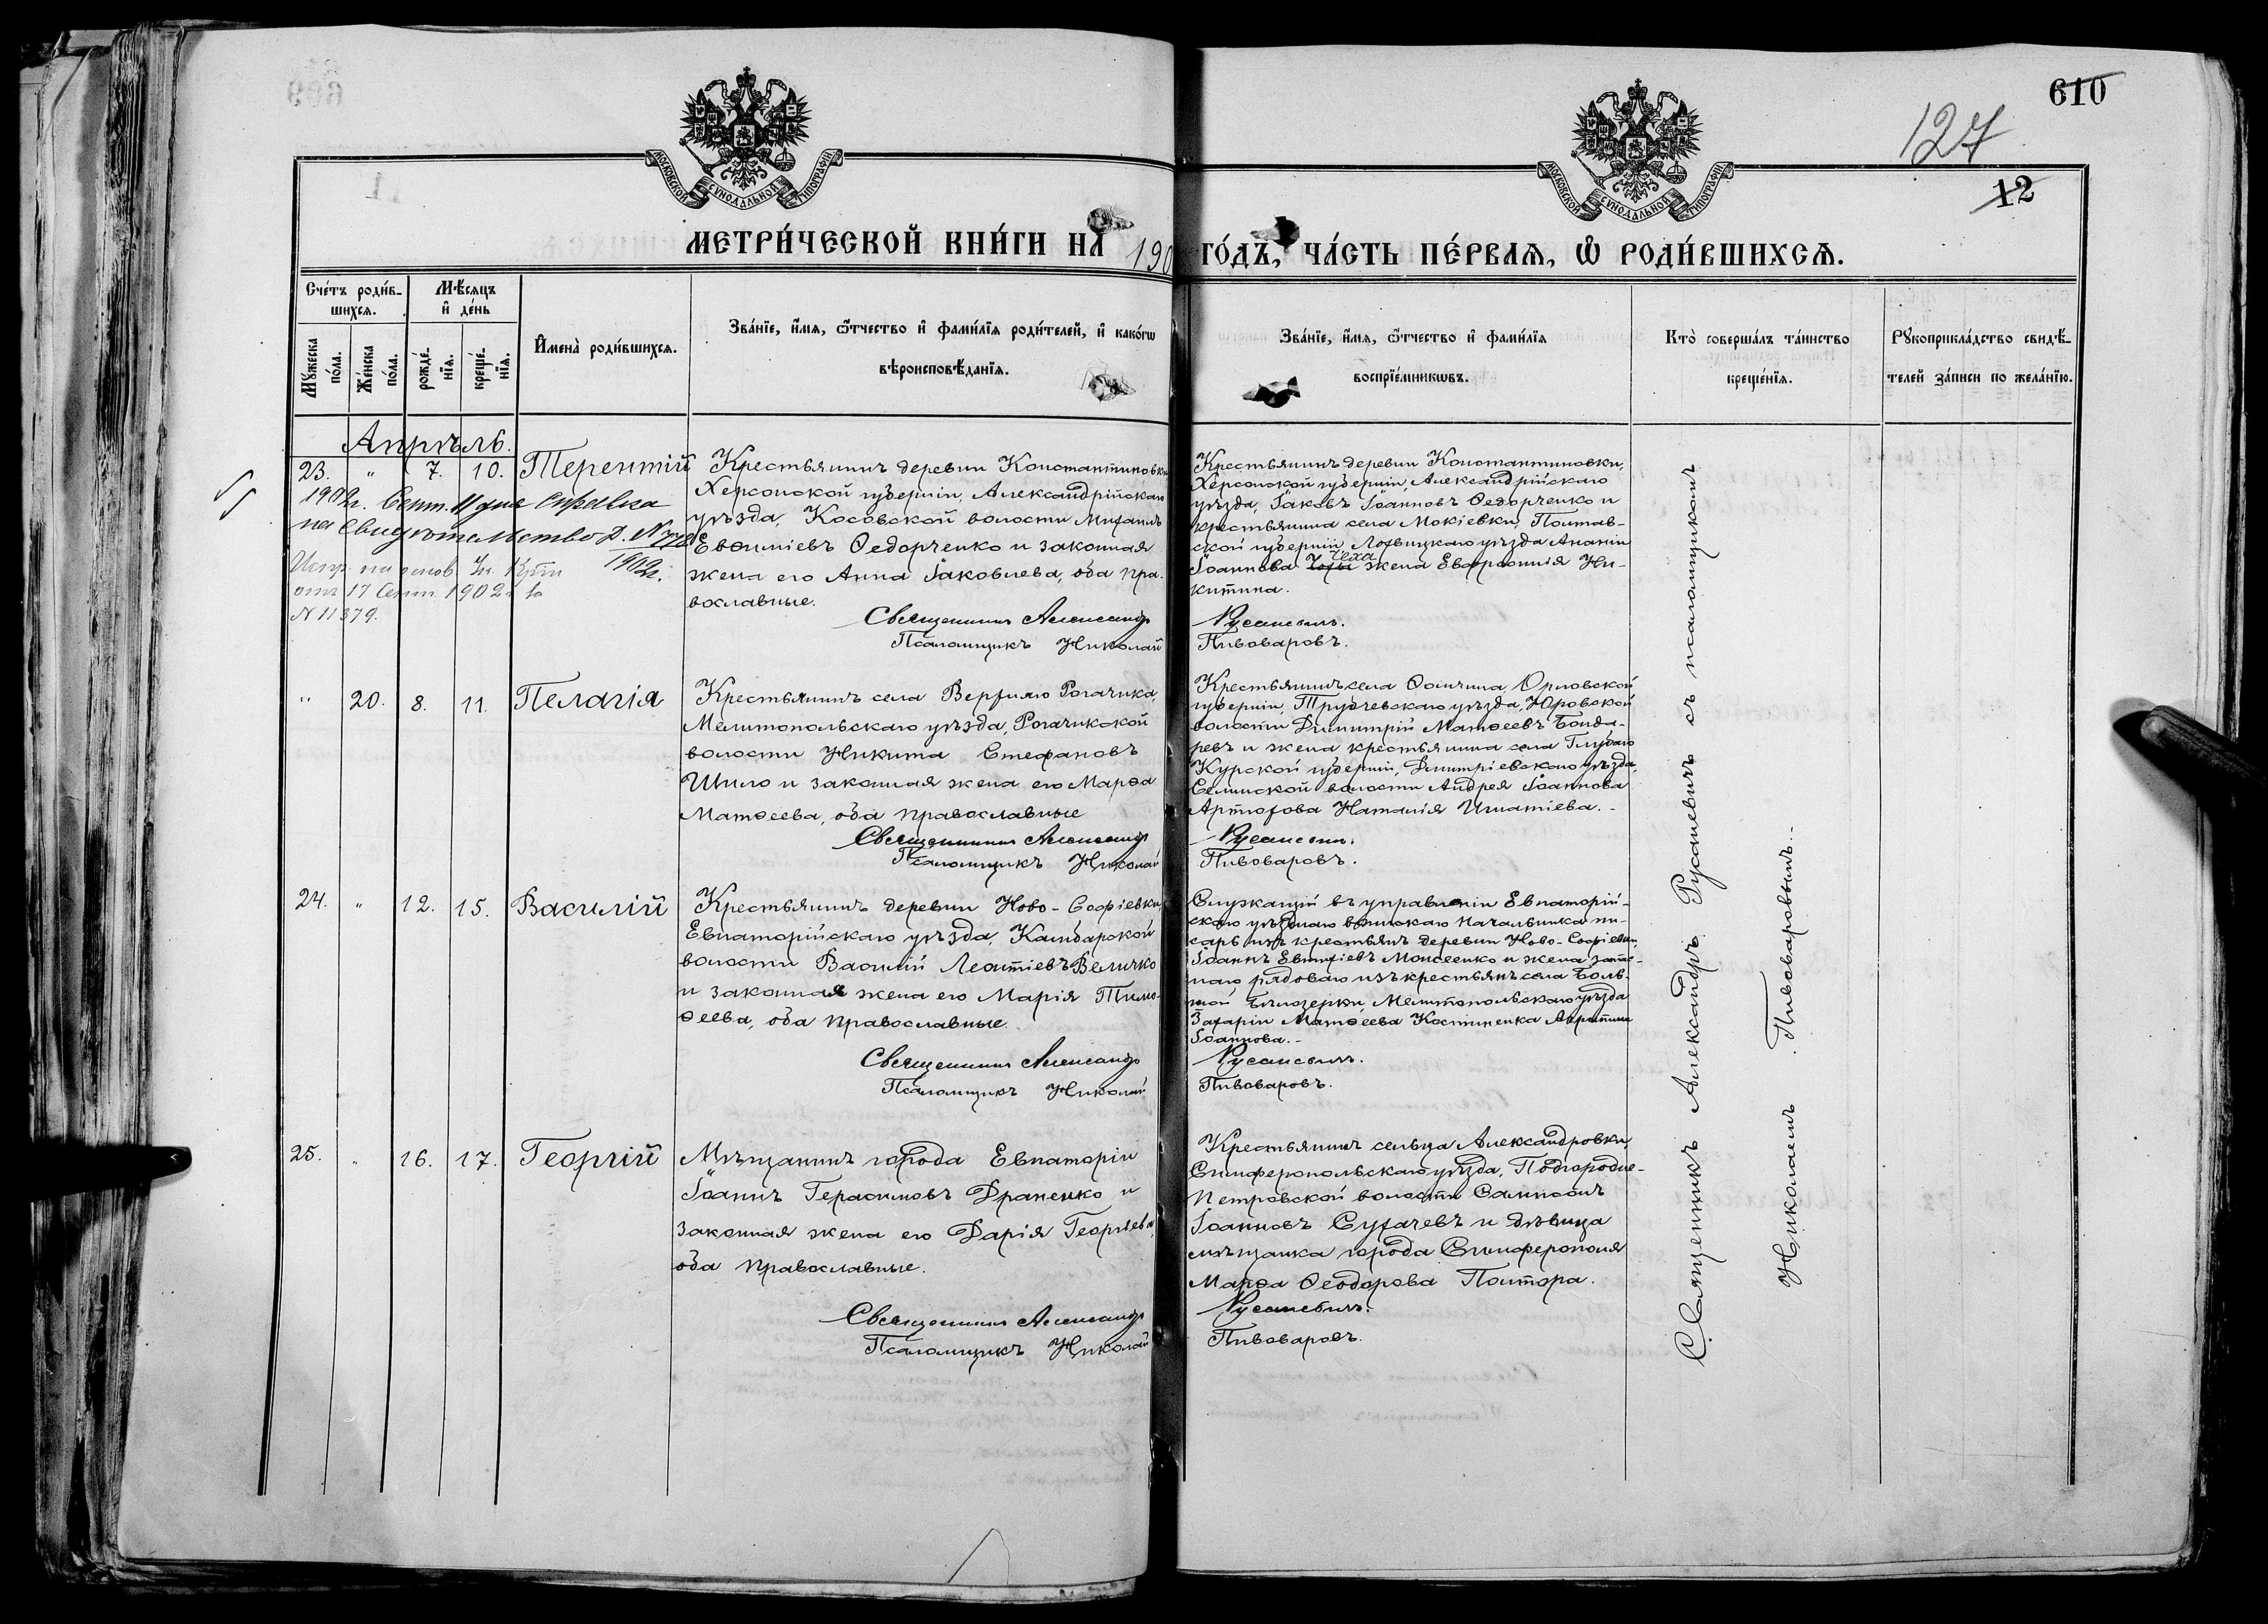 610
127
12
МОСКОВСКОЙ СѴНОДАЛЬНОЙ ТИПОГРАФІИ
МОСКОВСКОЙ СѴНОДАЛЬНОЙ ТИПОГРАФІИ
МЕТРИ́ЧЕСКОЙ КНИ́ГИ НА 190 ГО́ДЪ, ЧА́СТЬ ПЕ́РВАЯ, Ѡ҆ РОДИ́ВШИХСЯ.
Сче́тъ роди́в-
шихся.
Мѣ́сяцъ
и҆ де́нь
Мꙋ́жеска по́ла.
Же́нска по́ла.
рожде́-нїя.
креще́-нїя.
И҆мена̀ роди́вшихся.
Зва́нїе, и҆́мя, ѻ҆́тчество и҆ фами́лїя роди́телей, и҆ како́гѡ
вѣроисповѣ́данїя.
Зва́нїе, и҆́мя, ѻ҆́тчество и҆ фами́лїя
воспрїе́мникѡвъ.
Кто̀ соверша́лъ та́инство
креще́нїя.
Рꙋкоприкла́дство свидѣ́-
телей за́писи по жела́нїю.
Апрѣль.
23. " 7. 10. Терентій
1902 г. Сент. 11 дня справка
на свидѣтельство
1902 г.
отъ 17 Сент. 1902 г. за
N 11379.
Крестьянинъ деревни Константиновки
Херсонской губерніи, Александрійскаго
уѣзда, Косовской волости Михаилъ
Евѳиміевъ Ѳедорченко и законная
жена его Анна Іаковлева, оба пра-
вославные.
Священникъ Александръ
Псаломщикъ Николай
Крестьянинъ деревни Константиновки,
Херсонской губерніи, Александрійскаго
уѣзда, Іаковъ Іоанновъ Ѳедорченко и
крестьянина села Мокіевки, Полтав-
ской губерніи, Лохвицкаго уѣзда Ананіи
Іоаннова Чеха жена Евфросинія Ни-
китина.
Русаневичъ.
Пивоваровъ.
" 20. 8. 11. Пелагія
Крестьянинъ села Верхняго Рогачика,
Мелитопольскаго уѣзда, Рогачикской
волости Никита Стефановъ
Шило и законная жена его Марѳа
Матѳеева, оба православные
Священникъ Александръ
Псаломщикъ Николай
Крестьянинъ села Орловской
губерніи, Трубчевскаго уѣзда, Юровской
волости Димитрій Матѳеевъ Бонда-
ревъ и жена крестьянина села
Курской губерніи, Дмитріевскаго уѣзда,
волости Андрея Іоаннова
Артюхова Наталія Игнатіева.
Русаневичъ.
Пивоваровъ.
24. " 12. 15. Василій
Крестьянинъ деревни Ново-Софіевки
Евпаторійскаго уѣзда, Камбарской
волости Василій Леонтіевъ Величко
и законная жена его Марія Тимо-
ѳеева, оба православные.
Священникъ Александръ
Псаломщикъ Николай
Служащій въ управленіи Евпаторій-
скаго уѣзднаго воинскаго начальника пи-
сарь изъ крестьянъ деревни Ново-Софіевки,
Іоаннъ Моисеенко и жена запас-
наго рядоваго изъ крестьянъ села Боль-
шой Бѣлозерки Мелитопольскаго уѣзда
Захаріи Матѳеева Костиненка
Іоаннова.
Русаневичъ.
Пивоваровъ.
25. " 16. 17. Георгій
Мѣщанинъ города Евпаторіи
Іоаннъ Герасимовъ Драненко и
законная жена его Дарія Георгіева,
оба православные.
Священникъ Александръ
Псаломщикъ Николай
Крестьянинъ сельца Александровки,
Симферопольскаго уѣзда, Подгородне-
Петровской волости Сампсонъ
Іоанновъ Сухачевъ и дѣвица
мѣщанка города Симферополя
Марѳа Ѳеодорова Полтора.
Русаневичъ.
Пивоваровъ.
Священникъ Александръ Русаневичъ съ псаломщикомъ
Николаемъ Пивоваровымъ.